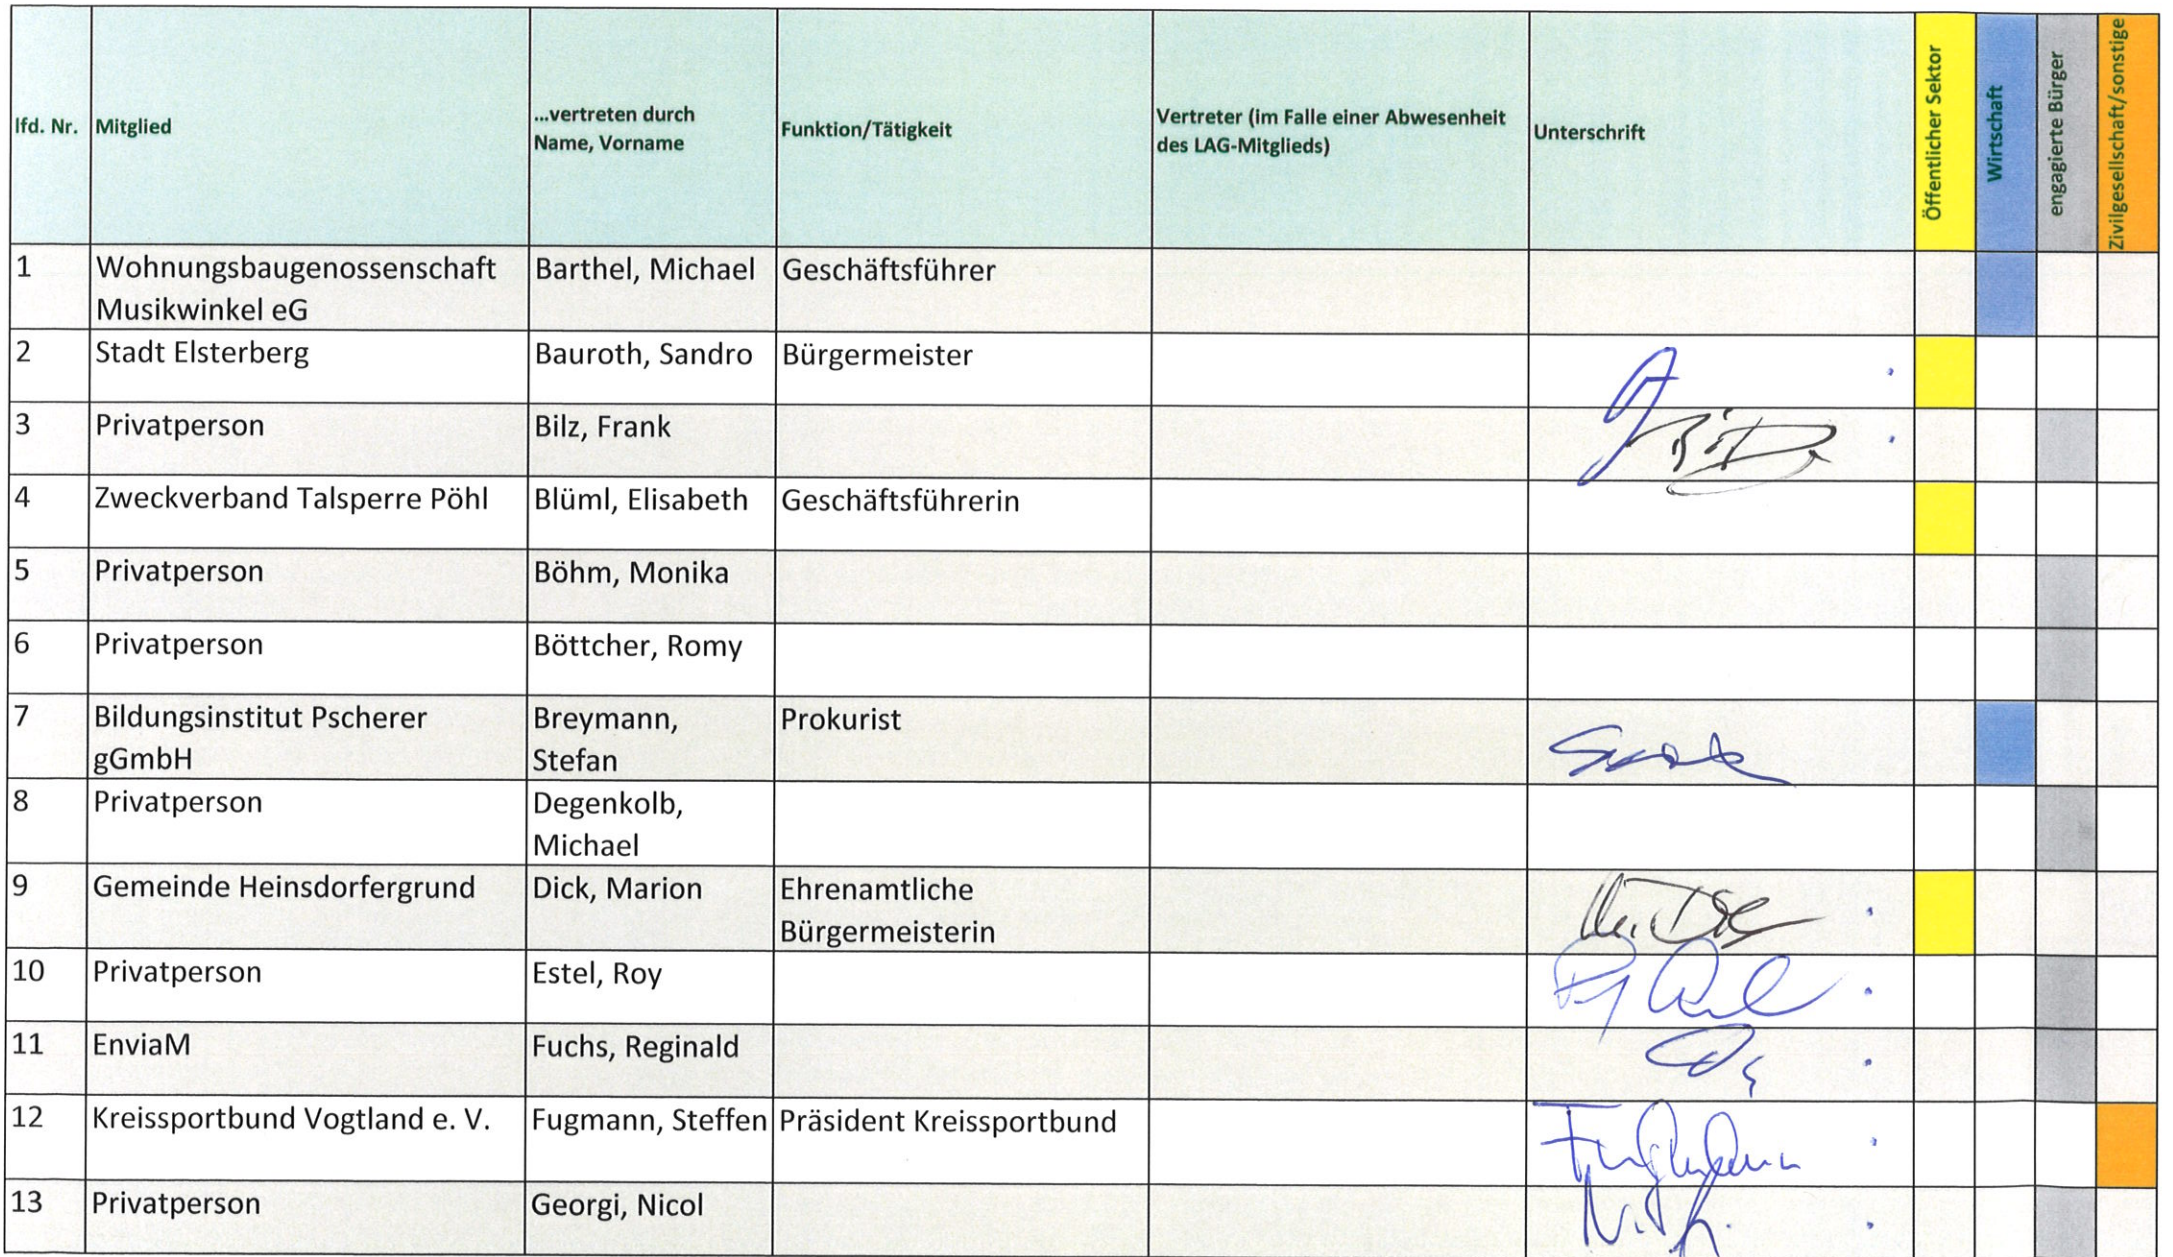 lfd. Nr. Mitglied ...vertreten durch Name, Vorname Funktion/Tätigkeit Vertreter (im Falle einer Abwesenheit des LAG-Mitglieds) Unterschrift Öffentlicher Sektor Wirtschaft engagierte Bürger Zivilgesellschaft/sonstige
1 Wohnungsbaugenossenschaft Musikwinkel eG Barthel, Michael Geschäftsführer
2 Stadt Elsterberg Bauroth, Sandro Bürgermeister
3 Privatperson Bilz, Frank
4 Zweckverband Talsperre Pöhl Blüml, Elisabeth Geschäftsführerin
5 Privatperson Böhm, Monika
6 Privatperson Böttcher, Romy
7 Bildungsinstitut Pscherer gGmbH Breymann, Stefan Prokurist
8 Privatperson Degenkolb, Michael
9 Gemeinde Heinsdorfergrund Dick, Marion Ehrenamtliche Bürgermeisterin
10 Privatperson Estel, Roy
11 EnviaM Fuchs, Reginald
12 Kreissportbund Vogtland e. V. Fugmann, Steffen Präsident Kreissportbund
13 Privatperson Georgi, Nicol